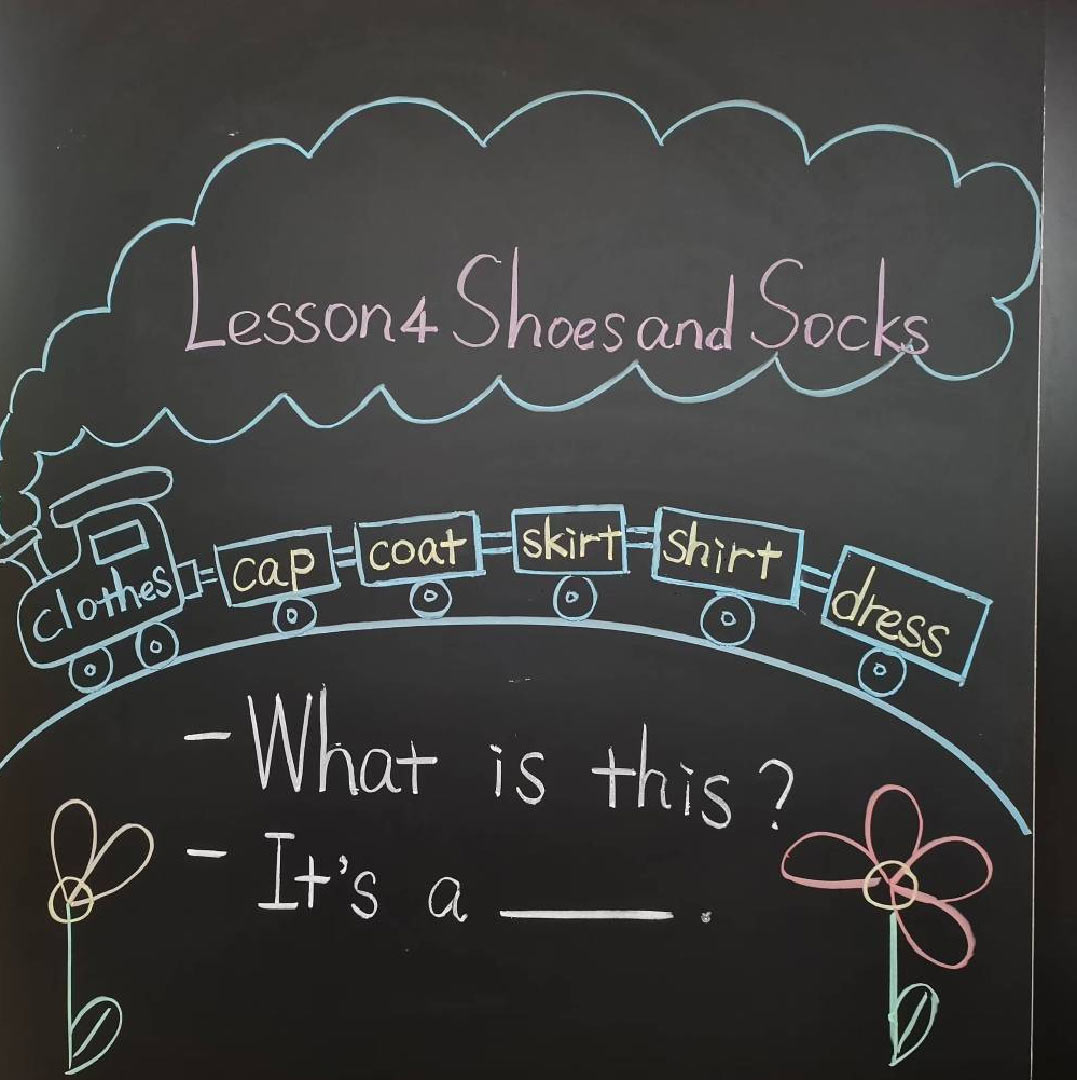 Lesson4 Shoes and Socks
clothes cap coat skirt shirt dress
- What is this?
- It's a ____.